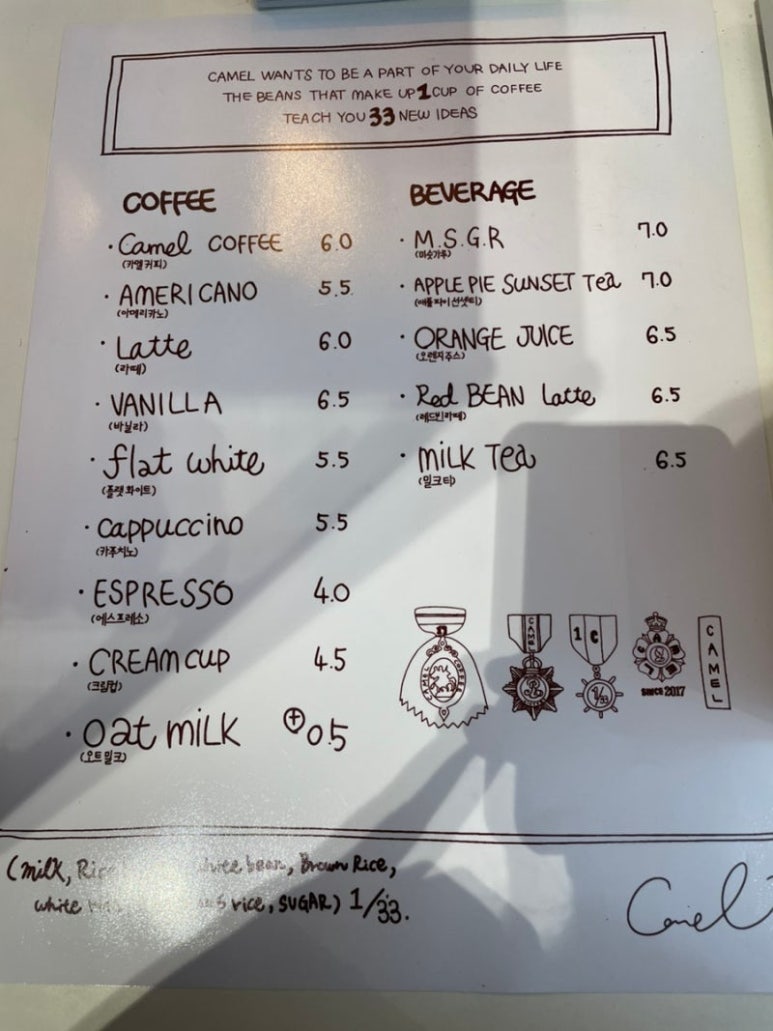 CAMEL WANTS TO BE A PART OF YOUR DAILY LIFE
THE BEANS THAT MAKE UP 1 CUP OF COFFEE
TEACH YOU 33 NEW IDEAS
COFFEE
· Camel COFFEE 6.0
(카멜커피)
· AMERICANO 5.5
(아메리카노)
· Latte 6.0
(라떼)
· VANILLA 6.5
(바닐라)
· flat white 5.5
(플랫화이트)
· cappuccino 5.5
(카푸치노)
· ESPRESSO 4.0
(에스프레소)
· CREAM CUP 4.5
(크림컵)
· oat milk +0.5
(오트밀크)
BEVERAGE
· M.S.G.R 7.0
(미숫가루)
· APPLE PIE SUNSET Tea 7.0
(애플파이선셋티)
· ORANGE JUICE 6.5
(오렌지주스)
· Red BEAN Latte 6.5
(레드빈라떼)
· MILK Tea 6.5
(밀크티)
CAMEL COFFEE
CAMEL
1 C
1/33
CAMEL
since 2017
CAMEL
(milk, bean, Brown Rice,
white rice, SUGAR) 1/33.
Camel